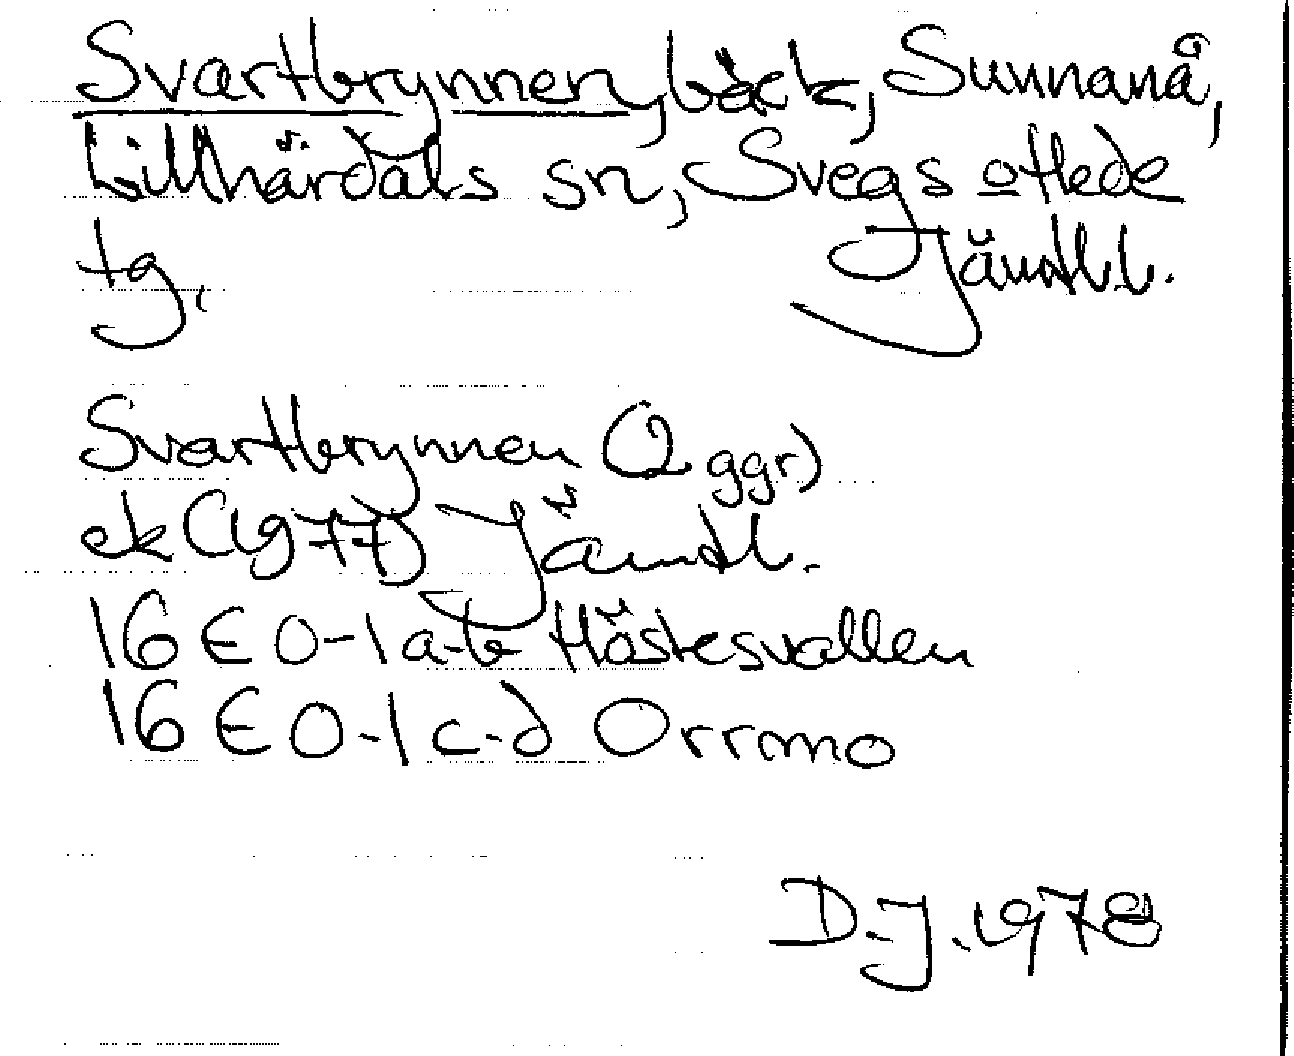 Svartbrynnen, bäck, Sunnanå,
Lillhärdals sn, Svegs otlede
tg, Jämtl.l.
Svartbrynnen (2 ggr)
ek (1977) Jämtl.
16 E 0-1 a-b Hästesvallen
16 E 0-1 c-d Orrmo
D.J. 1978